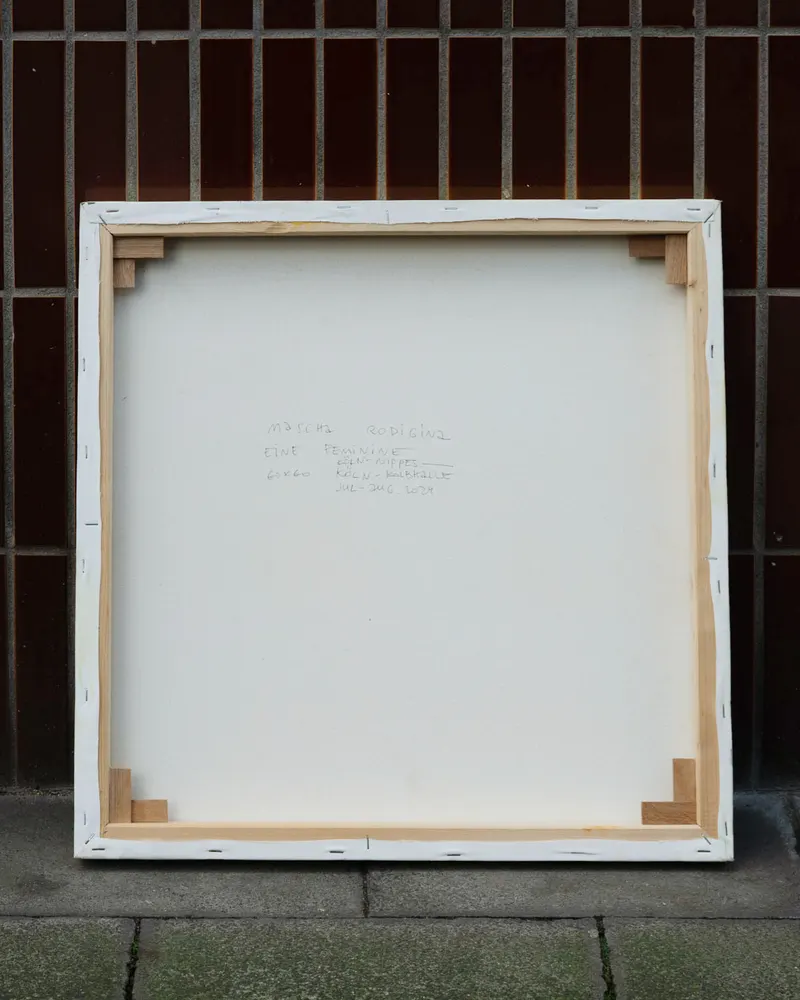 MASCHA RODIGINA
EINE FEMININE
KÖLN-NIPPES
60x60 KÖLN-KALKALLE
JUL-AUG 2024